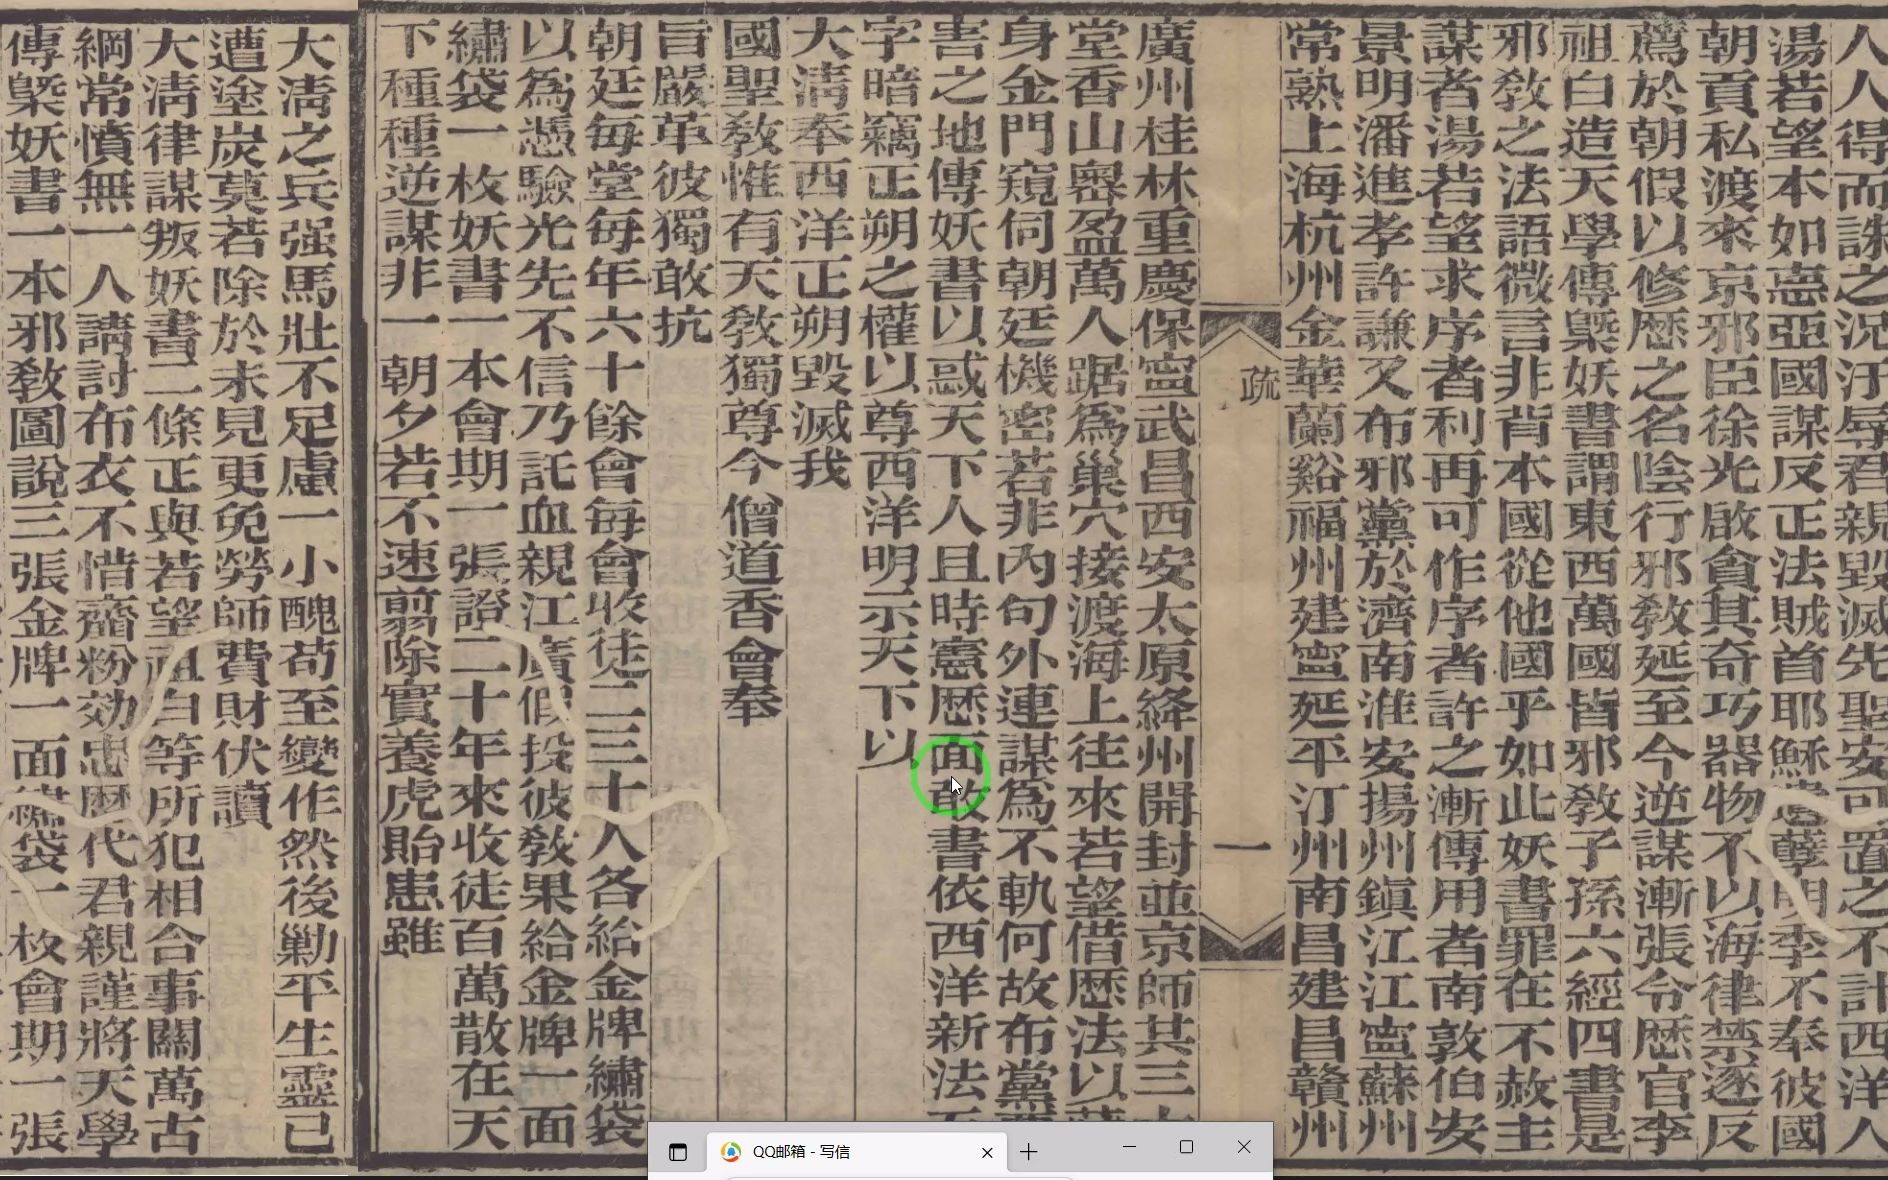 人人得而誅之況汙辱君親毀滅先聖安可置之不計西洋人
湯若望本如悳亞國謀反正法賊首耶穌遺孽明季不奉彼國
朝貢私渡來京邪臣徐光啟貪其奇巧器物不以海律禁逐反
薦於朝假以修歷之名陰行邪敎延至今逆謀漸張令歷官李
祖白造天學傳槩妖書謂東西萬國皆邪敎子孫六經四書是
邪敎之法語微言非背本國從他國乎如此妖書罪在不赦主
謀者湯若望求序者利再可作序者許之漸傳用者南敦伯安
景明潘進孝許謙又布邪黨於濟南淮安揚州鎭江江寧蘇州
常熟上海杭州金華蘭谿福州建寧延平汀州南昌建昌贛州
疏
一
廣州桂林重慶保寧武昌西安太原絳州開封並京師共三
堂香山嶴盈萬人踞爲巢穴接渡海上往來若望借歷法以
身金門窺伺朝廷機密若非內句外連謀爲不軌何故布黨
害之地傳妖書以惑天下人且時憲歷面敢書依西洋新法
字暗竊正朔之權以尊西洋明示天下以
大淸奉西洋正朔毀滅我
國聖敎惟有天敎獨尊今僧道香會奉
旨嚴革彼獨敢抗
朝廷每堂每年六十餘會每會收徒二三十人各給金牌繡袋
以為憑驗光先不信乃託血親江廣假投彼敎果給金牌一面
繡袋一枚妖書一本會期一張證二十年來收徒百萬散在天
下種種逆謀非一朝夕若不速翦除實養虎貽患雖
大淸之兵强馬壯不足慮一小醜苟至變作然後勦平生靈已
遭塗炭莫若除於未見更免勞師費財伏讀
大淸律謀叛妖書二條正與若望祖白等所犯相合事關萬古
綱常憤無一人請討布衣不惜齏粉効忠歷代君親謹將天學
傳槩妖書一本邪敎圖說三張金牌一面繡袋一枚會期一張
QQ邮箱 - 写信